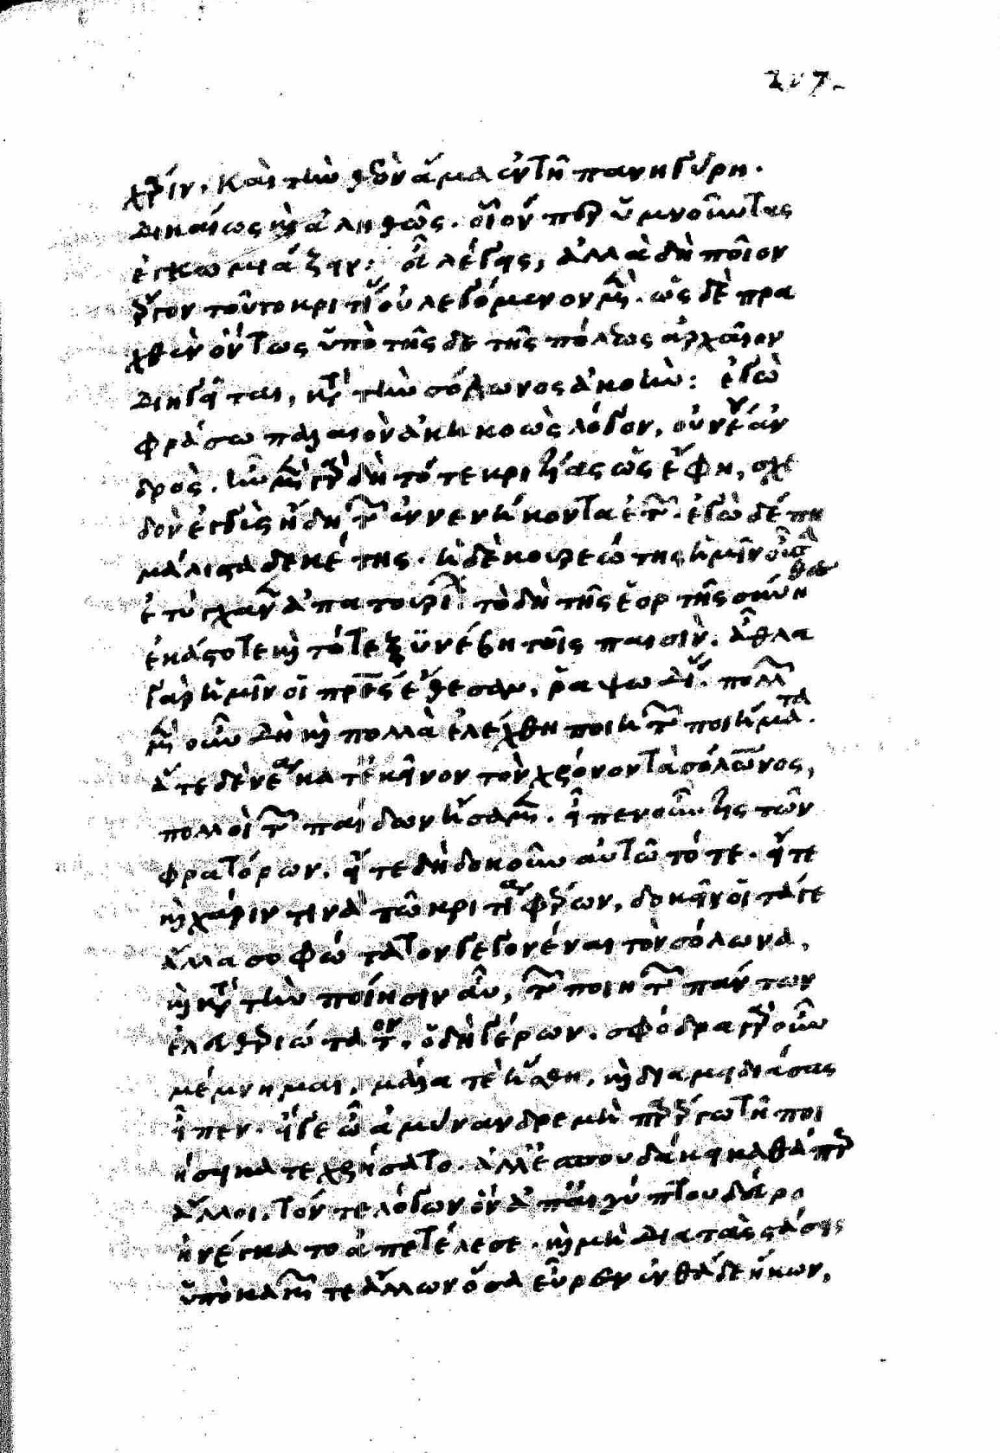 207
χάριν. καὶ τὴν θεὸν ἅμα ἐν τῇ πανηγύρει.
δικαίως καὶ ἀληθῶς. οἷόν περ ὑμνοῦντας
ἐγκωμιάζειν: εὖ λέγεις, ἀλλὰ δὴ ποῖον
ἔργον τοῦτο κριτίας οὐ λεγόμενον μὲν. ὡς δὲ πρα
χθὲν ὄντως ὑπὸ τῆσδε τῆς πόλεως ἀρχαῖον
διηγεῖται, κατὰ τὴν σόλωνος ἀκοήν: ἐγὼ
φράσω παλαιὸν ἀκηκοὼς λόγον, οὐ νέου ἀν
δρὸς. ἦν μὲν γὰρ δὴ τότε κριτίας ὡς ἔφη, σχε
δὸν ἐγγὺς ἤδη τῶν ἐννενήκοντα ἐτῶν. ἐγὼ δέ πη
μάλιστα δεκέτης. ἡ δὲ κουρεῶτης ἡμῖν οὖσα
ἐτύγχανεν ἀπατουρίων. τὸ δὴ τῆς ἑορτῆς σύνηθες
ἑκάστοτε καὶ τότε ξυνέβη τοῖς παισὶν. ἆθλα
γὰρ ἡμῖν οἱ πατέρες ἔθεσαν. ῥαψωδίας. πολλῶν
μὲν οὖν δὴ καὶ πολλὰ ἐλέχθη ποιητῶν ποιήματα.
ἅτε δὲ νέα κατ' ἐκεῖνον τὸν χρόνον ὄντα τὰ σόλωνος,
πολλοὶ τῶν παίδων ᾔσαμεν. εἶπεν οὖν τις τῶν
φρατόρων. εἴτε δὴ δοκοῦν αὐτῷ τότε. εἴτε
καὶ χάριν τινὰ τῷ κριτίᾳ φέρων, δοκεῖν οἱ τά τε
ἄλλα σοφώτατον γεγονέναι τὸν σόλωνα,
καὶ κατὰ τὴν ποίησιν αὖ, τῶν ποιητῶν πάντων
ἐλευθεριώτατον. ὁ δὴ γέρων. σφόδρα γὰρ οὖν
μέμνημαι, μάλα τε ἥσθη, καὶ διαμειδιάσας
εἶπεν. εἴ γε ὦ ἀμύνανδρε μὴ παρέργῳ τῇ ποι
ήσει κατεχρήσατο. ἀλλ' ἐσπουδάκει καθάπερ
ἄλλοι. τόν τε λόγον ὃν ἀπ' αἰγύπτου δεῦρο
ἠνέγκατο ἀπετέλεσε. καὶ μὴ διὰ τὰς στάσεις
ὑπὸ κακῶν τε ἄλλων ὅσα εὗρεν ἐνθάδε ἥκων,